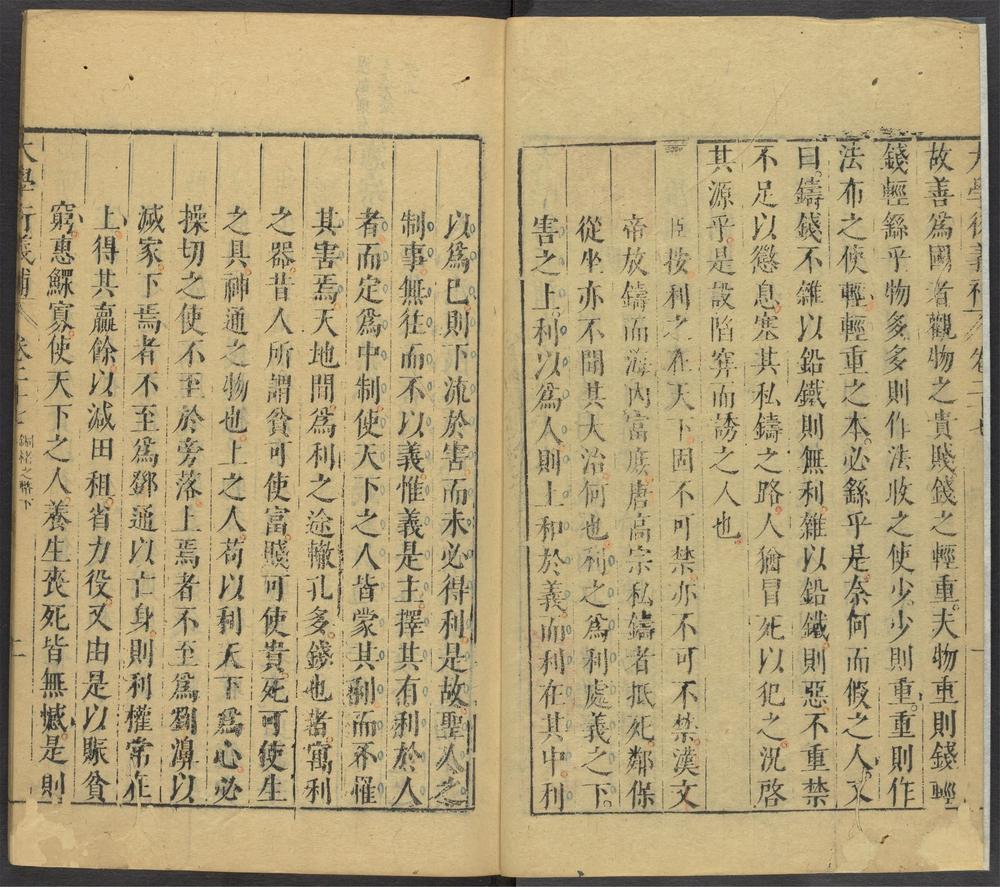 大學衍義補 卷二十七
故善爲國者觀物之貴賤錢之輕重夫物重則錢輕
錢輕繇乎物多多則作法收之使少少則重重則作
法布之使輕輕重之本必繇乎是奈何而假之人又
曰鑄錢不雜以鉛鐵則無利雜以鉛鐵則惡不重禁
不足以懲息塞其私鑄之路人猶冒死以犯之況啓
其源乎是設陷穽而誘之人也
臣按利之在天下固不可禁亦不可不禁漢文
帝放鑄而海內富庶唐高宗私鑄者抵死鄰保
從坐亦不聞其大治何也利之爲利處義之下
害之上利以爲人則上和於義而利在其中利
以爲已則下流於害而未必得利是故聖人之
制事無往而不以義惟義是主擇其有利於人
者而定爲中制使天下之人皆蒙其利而不罹
其害焉天地間爲利之途轍孔多錢也者寓利
之器昔人所謂貧可使富賤可使貴死可使生
之具神通之物也上之人苟以利天下爲心必
操切之使不至於旁落上焉者不至爲劉濞以
滅家下焉者不至爲鄧通以亡身則利權常在
上得其贏餘以減田租省力役又由是以賑貧
窮惠鰥寡使天下之人養生喪死皆無憾是則
大學衍義補 卷二十七 銅楮之幣下